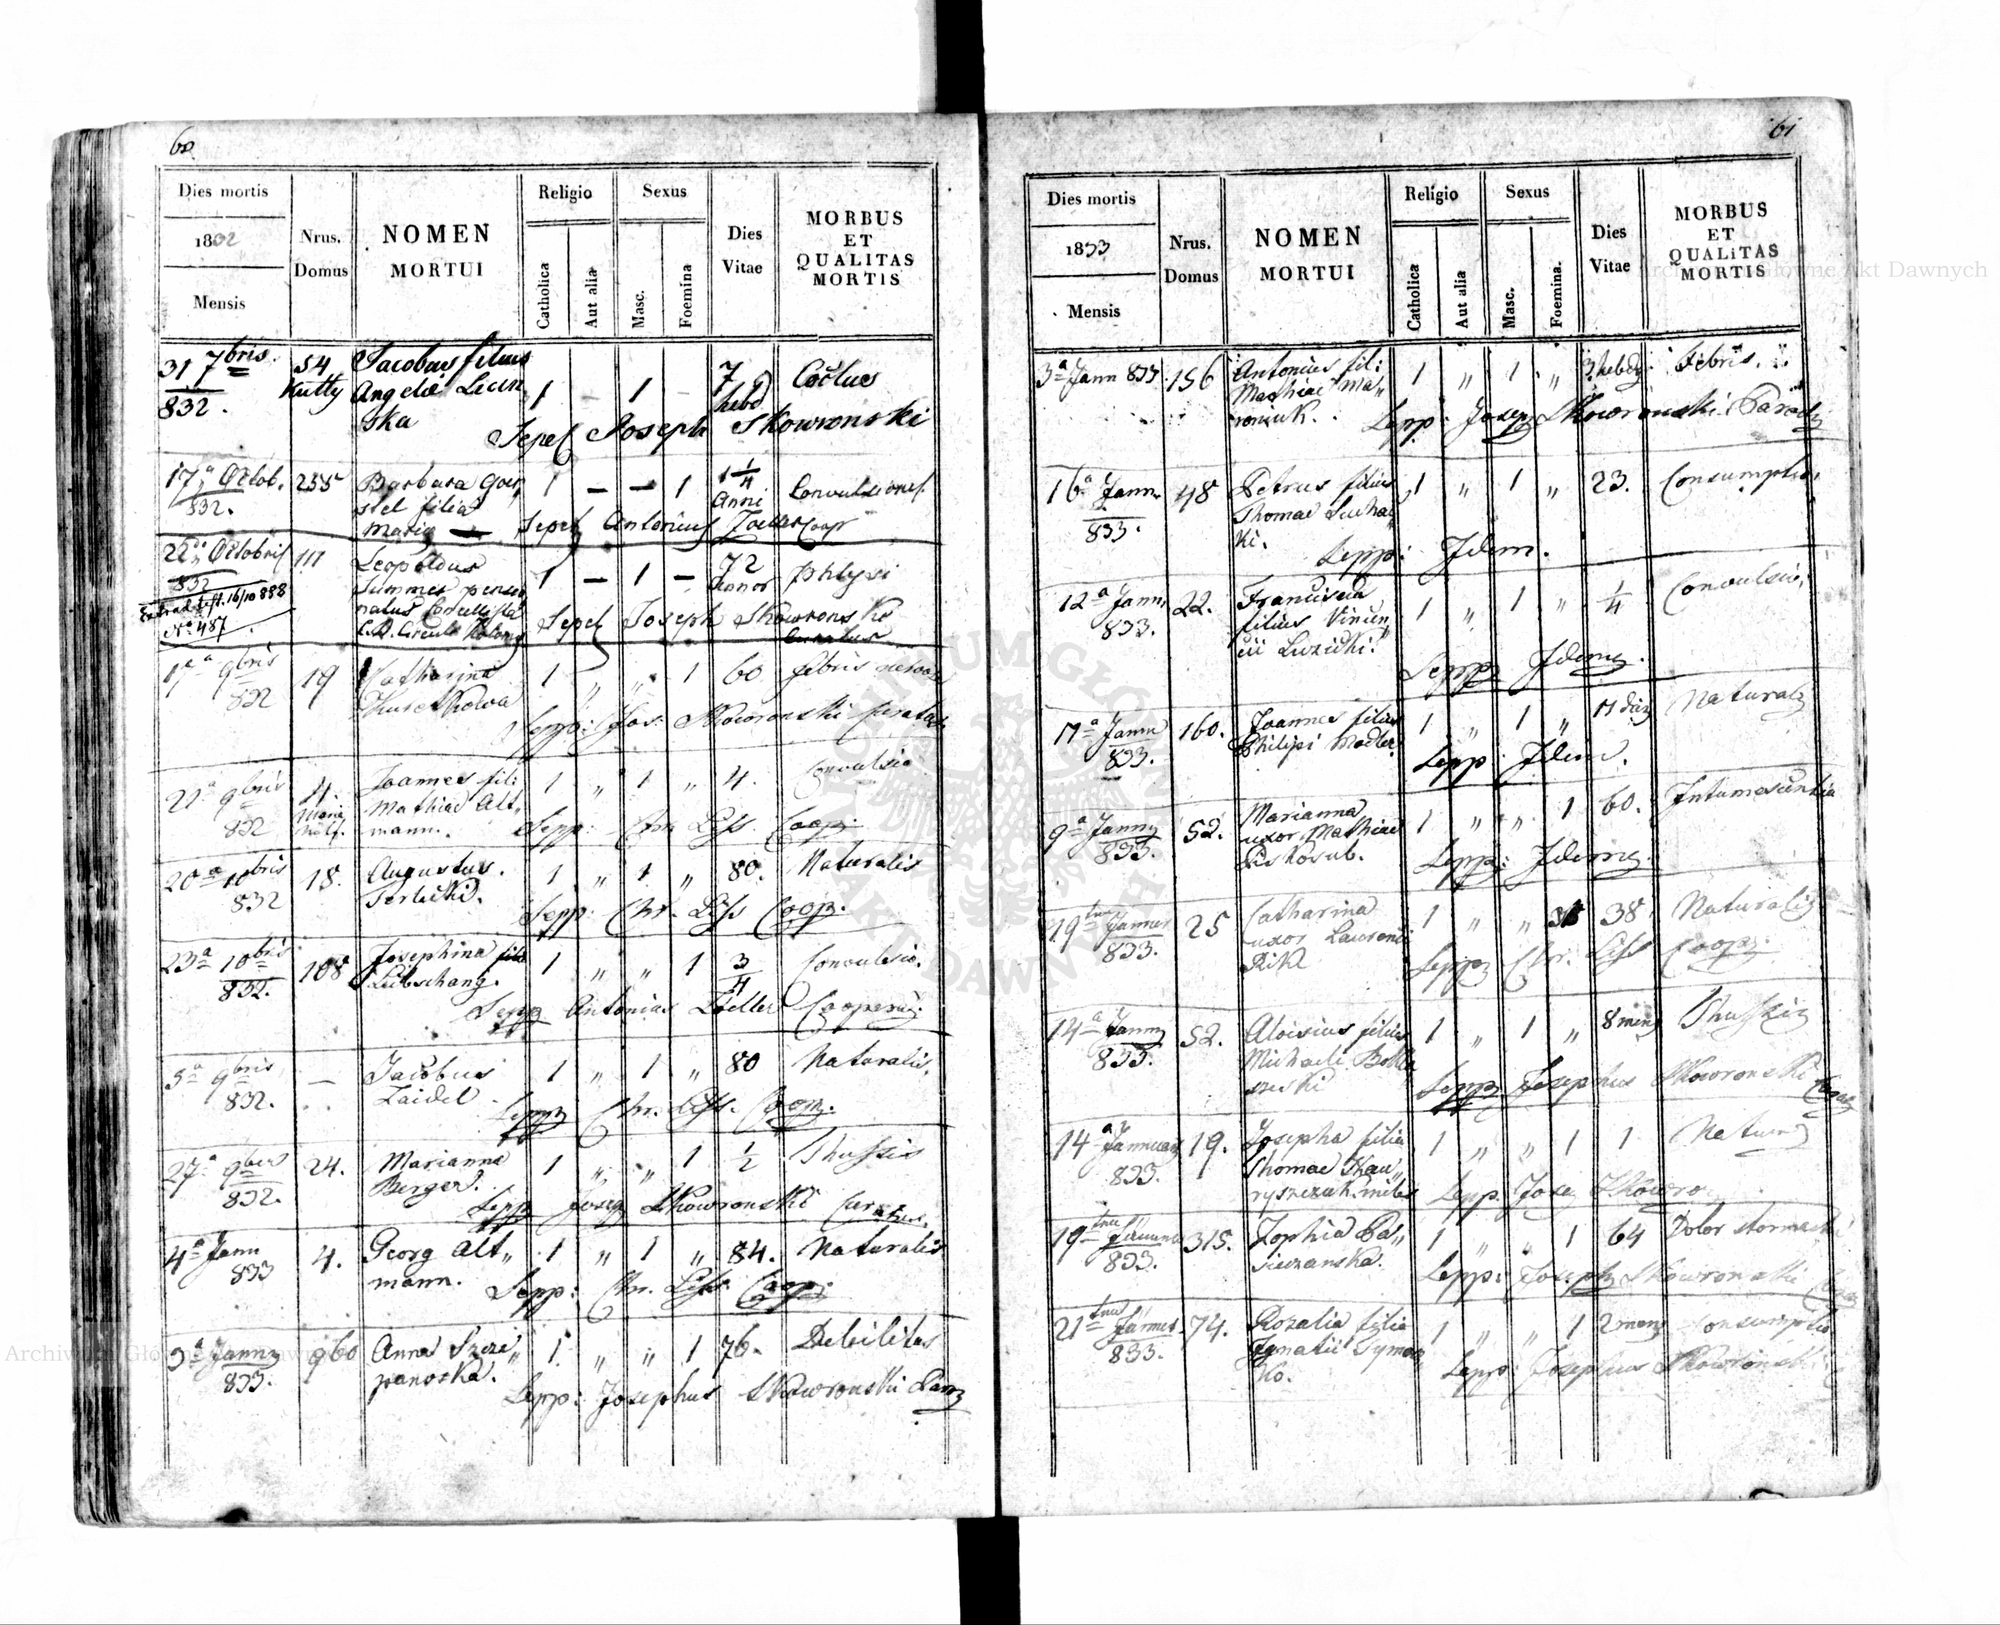 60
Dies mortis
1832
Mensis
Nrus. Domus
NOMEN MORTUI
Religio
Catholica
Aut alia
Sexus
Masc.
Foemina
Dies Vitae
MORBUS ET QUALITAS MORTIS
31 7bris 54 Jacobus filius 7
832. Kutty Angelae 1 – 1 – hebd
ska Sepel Joseph Skowronski
17a Octob. 255 Barbara Goer 1 – – 1 1 1/4 Convulsiones
832. stel filia Anni
Maria — Sepel Antonius Zoeller Coop
22 Octobris 111 Leopoldus 1 – 1 – 72 phtysi
832 Summer pensio Annor
Extrad. test. 16/10 888 natus Cancellista
No 487 C.R. Circuli Kolom Sepel Joseph Skowronski
Curatus
17a 9bris 19 Catharina 1 „ „ 1 60 febris nervos
832
Sepp: Jos: Skowronski Curatus
21a 9bris 4. Joannes fil: 1 „ 1 „ 4. Convulsio
832 Maria Mathiae Alt„
hilf. mann. Sepp: Chr. Liss Coop.
20a 10bris 18. Augustus 1 „ 1 „ 80. Naturalis
832 Terlecki. Sepp: Chr. Liss Coop.
23a 10bris 108 Josephina filia 1 „ „ 1 3/4 Convulsio.
832. Liebschang.
Sepp Antonius Zoeller Cooper
5a 9bris — Jacobus 1 „ 1 „ 80 Naturalis.
832. Zaidel
Sepp Chr. Liss. Coop.
27a 9bris 24. Marianna 1 „ „ 1 1/2 Thussis
832. Berger.
Sepp Josep Skowronski Curatus
4a Jann 4. Georg Alt„ 1 „ 1 „ 84. Naturalis
833 mann. Sepp: Chr. Liss: Coop:
3a Janny 960 Anna Szcze„ 1. „ „ 1 76. Debilitas
833. panoska. Sepp: Josephus Skowronski Paro
61
Dies mortis
1833
Mensis
Nrus. Domus
NOMEN MORTUI
Religio
Catholica
Aut alia
Sexus
Masc.
Foemina.
Dies Vitae
MORBUS ET QUALITAS MORTIS
3a Jann 833 156 Antonius fil: 1 „ 1 „ 3 hebd Febris.
Mathiae Ma„
roniuk. Sepp: Josep Skowronski Paroch
16a Jann 48 Petrus filius 1 „ 1 „ 23. Consumptio.
833. Thomae Suchac
ki. Sepp: Idem.
12a Jann 22. Franciscus 1 „ 1 „ 1/4 Convulsio.
833. filius Vincen„
tii Luzicki. Sepp Idem.
17a Jann 160. Joannes filius 1 „ 1 „ 17 dies Naturalis
833. Philipi Modler. Sepp: Idem.
9a Janny 52. Marianna 1 „ „ 1 60. Intumescentia
833. uxor Mathiae
Piskosub. Sepp: Idem.
19 Januar 25 Catharina 1 „ „ 1 38 Naturalis
833. uxor Laurenti
Pikl Sepp Chr. Liss Coop.
14a Janny 52. Aloisius filius 1 „ 1 „ 8 mens Thussis
833. Michaeli
Sepp Josephus Skowronski
14a Januar 19. Josepha filia 1 „ „ 1 1 Natur
833. Thomae Hau„
ryszczuk militis Sepp: Josep Skowro
19 Januar 315. Zophia 1 „ „ 1 64 Dolor stomachi
833. Sepp: Joseph Skowronski
21 Januar 74. Rozalia filia 1 „ „ 1 2 mens Consumptio
833. Ignatii Tymon
ko. Sepp: Josephus Skowronski
Archiwum Główne Akt Dawnych